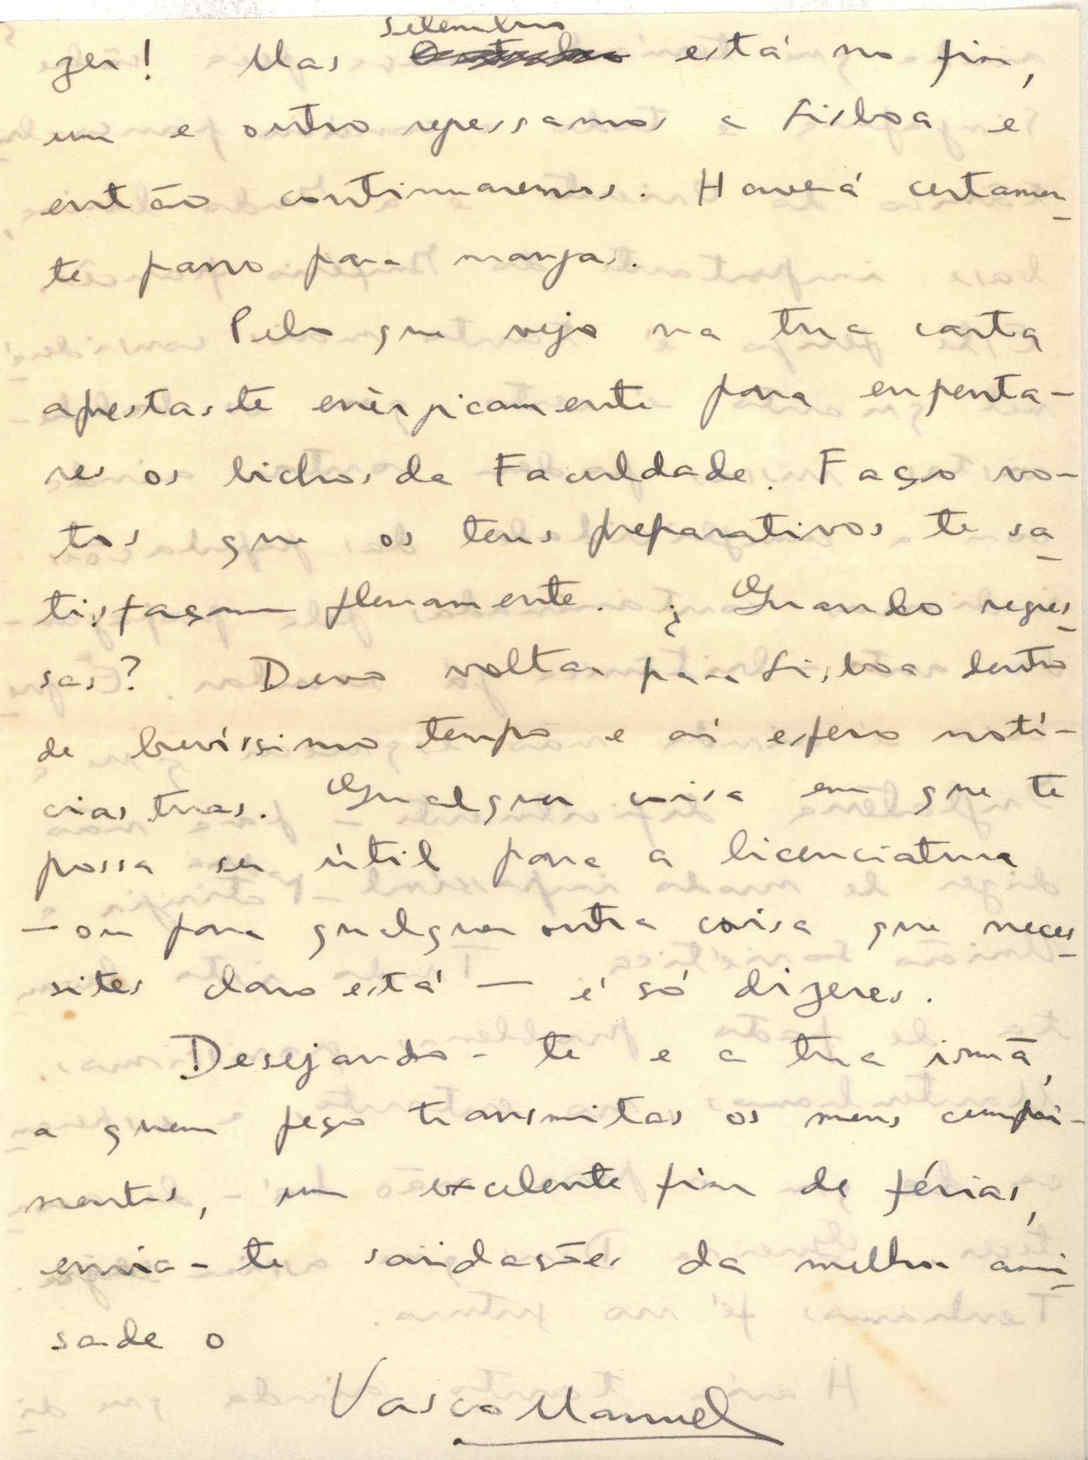 Setembro
zer! Mas Outubro está no fim,
um e outro regressamos a Lisboa e
então continuaremos. Haverá certamen-
te pano para mangas.
Pelo que vejo na tua carta
aprestaste enèrgicamente para enfrenta-
res os bichos da Faculdade. Faço vo-
tos que os teus preparativos te sa-
tisfaçam plenamente. ¿Quando regres-
sas? Devo voltar para Lisboa dentro
de brevíssimo tempo e aí espero notí-
cias tuas. Qualquer coisa em que te
possa ser útil para a licenciatura
— ou para qualquer outra coisa que neces-
sites claro está — é só dizeres.
Desejando-te e a tua irmã,
a quem peço transmitas os meus cumpri-
mentos, um excelente fim de férias,
envia-te saüdações da melhor ami-
sade o
Vasco Manuel